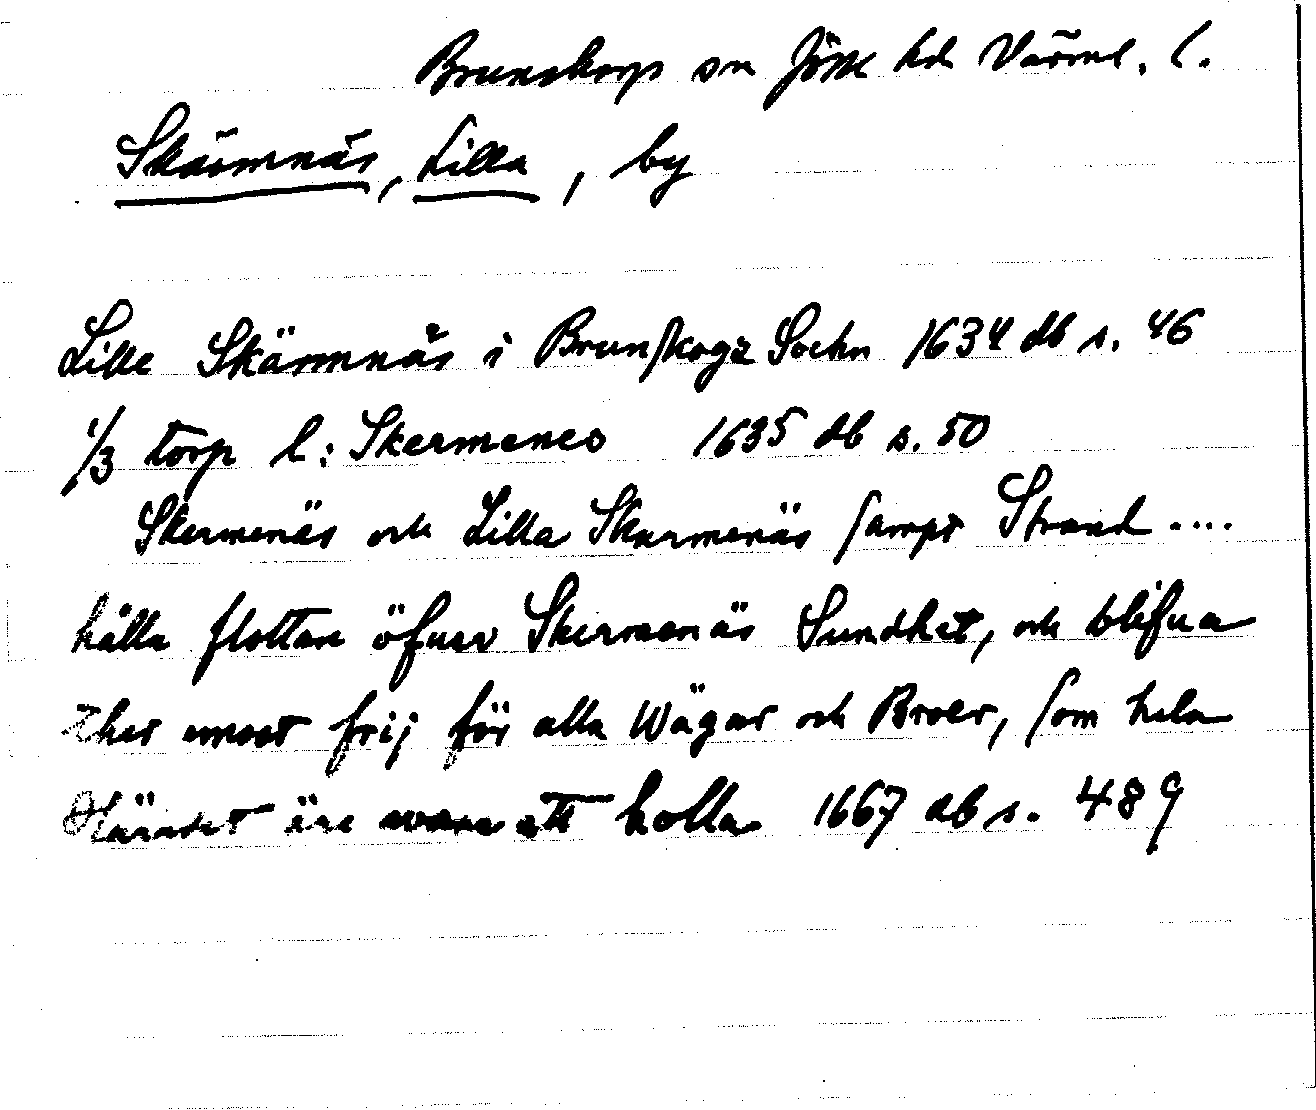 Brunskogs sn Jösse hd Värml. l.
Skärmnäs, Lilla, by
Lille Skärmnäs i Brunskogz Sochn 1634 db s. 46
1/3 torp l: Skermenes 1635 db s. 50
Skermenäs och Lilla Skermenäs sampt Strand ....
hålla flottan öfuer Skermenäs Sundhet, och blifua
ther emoot frij för alla Wägar och Broer, som hela
Häradet äre att holla 1667 db s. 489